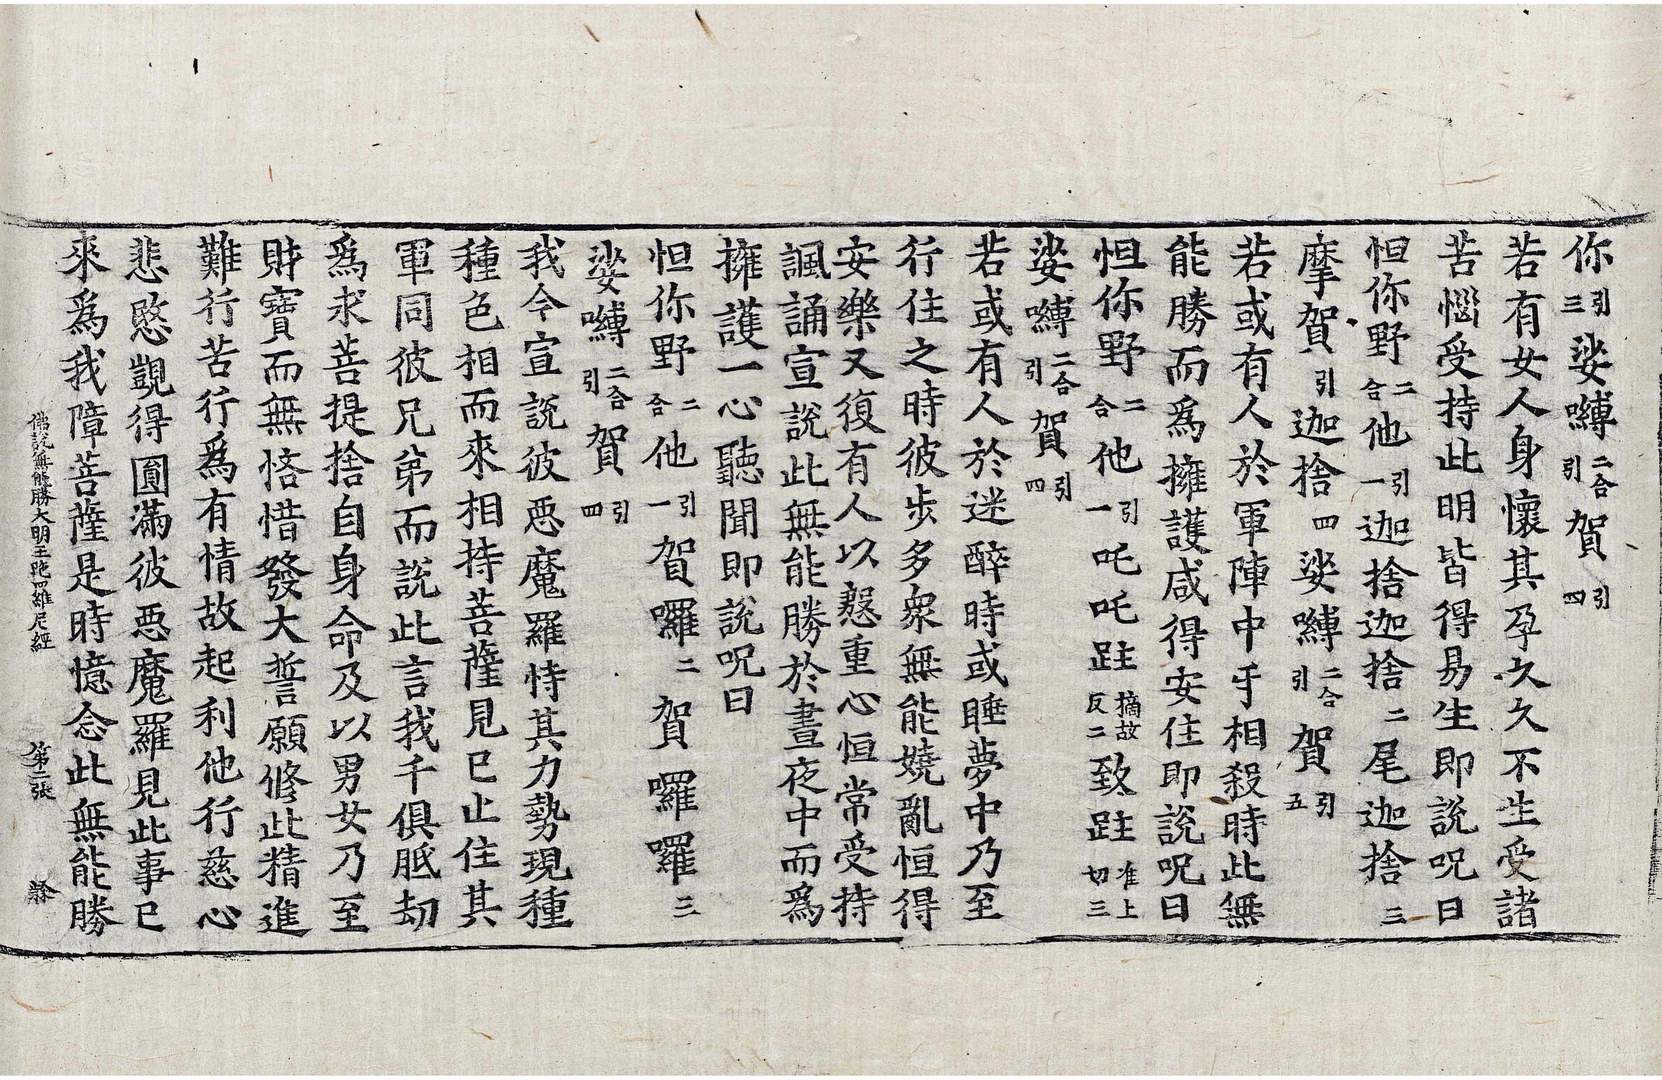 你引三娑嚩二合引賀引四
若有女人身懷其孕久久不生受諸
苦惱受持此明皆得易生即說呪曰
怛你野二合他引一迦捨迦捨二尾迦捨三
摩賀引迦捨四娑嚩二合引賀引五
若或有人於軍陣中乎相殺時此無
能勝而爲擁護咸得安住即說呪曰
怛你野二合他引一吒吒𪘨摘故反二致𪘨准上切三
娑嚩二合引賀引四
若或有人於迷醉時或睡夢中乃至
行住之時彼步多衆無能嬈亂恒得
安樂又復有人以慇重心恒常受持
諷誦宣說此無能勝於晝夜中而爲
擁護一心聽聞即說呪曰
怛你野二合他引一賀囉二賀囉囉三
娑嚩二合引賀引四
我今宣說彼惡魔羅恃其力勢現種
種色相而來相持菩薩見已止住其
軍同彼兄弟而說此言我千俱胝劫
爲求菩提捨自身命及以男女乃至
財寶而無悋惜發大誓願修此精進
難行苦行爲有情故起利他行慈心
悲愍觀得圓滿彼惡魔羅見此事已
來爲我障菩薩是時憶念此無能勝
佛說無能勝大明王陁羅尼經 第二張